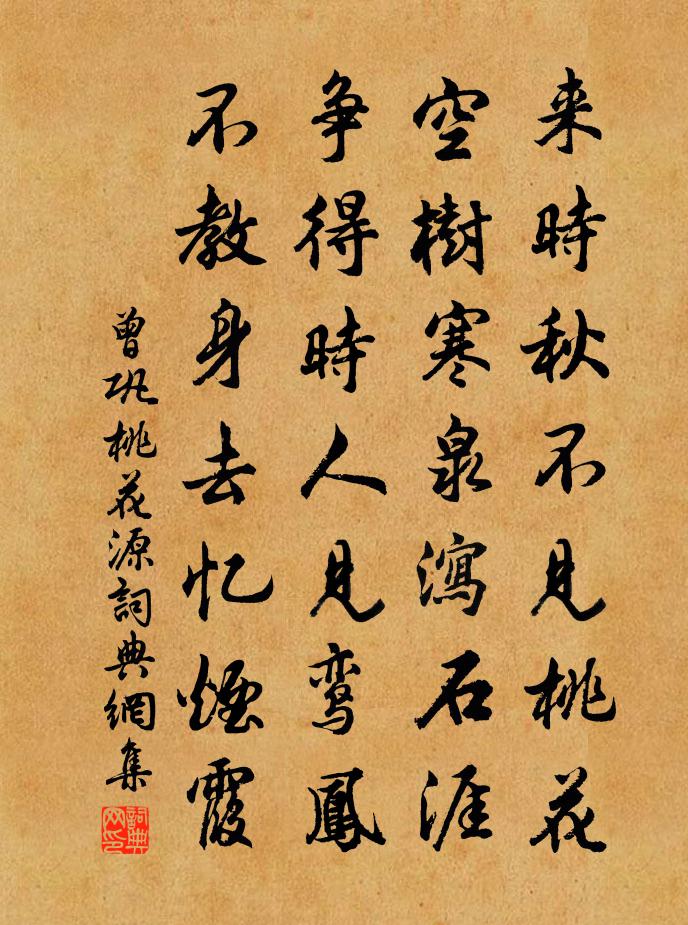 来時秋不見桃花
空樹寒泉瀉石涯
争得時人見鸾鳳
不教身去忆煙霞
曾巩桃花源詞典網集
詞典网印